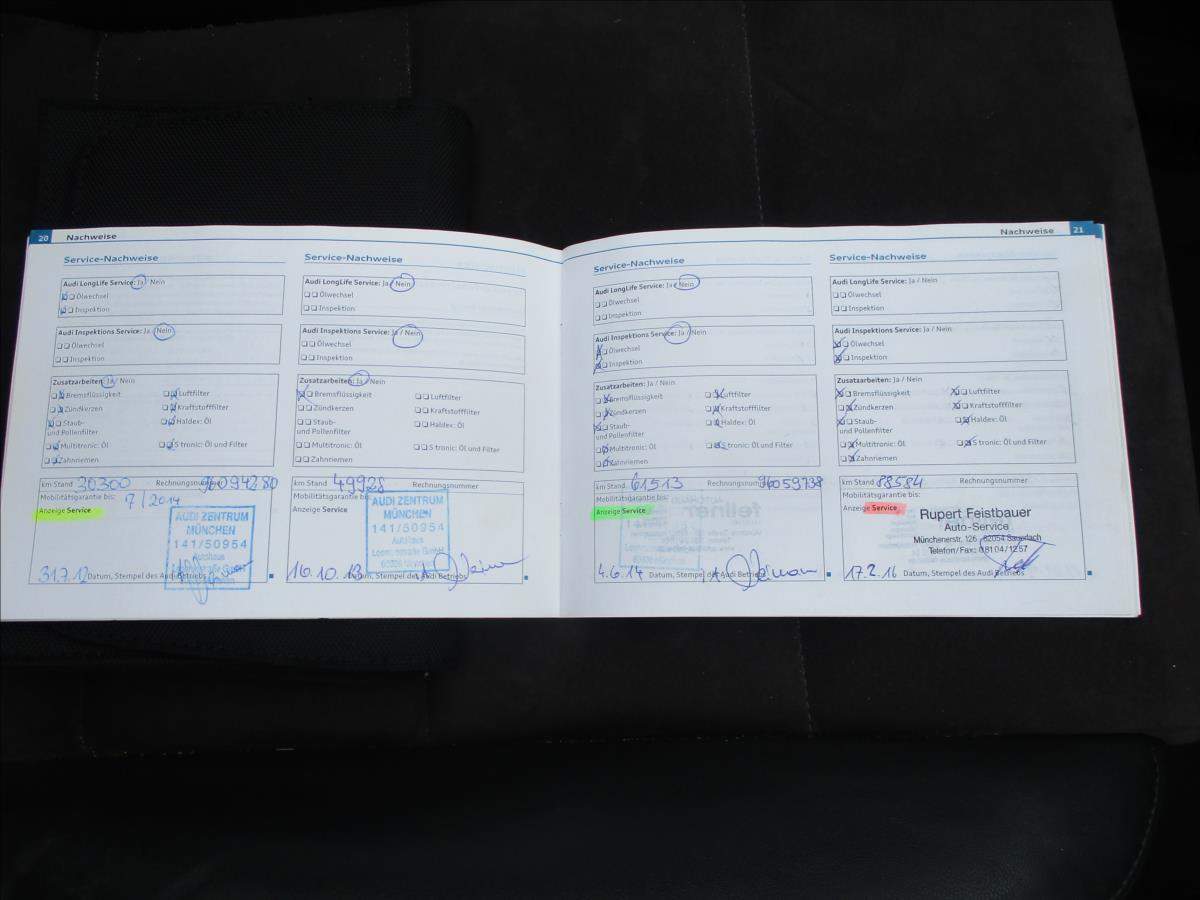 20 Nachweise
Service-Nachweise
Audi LongLife Service: Ja / Nein
Ölwechsel
Inspektion
Audi Inspektions Service: Ja / Nein
Ölwechsel
Inspektion
Zusatzarbeiten: Ja / Nein
Bremsflüssigkeit Luftfilter
Zündkerzen Kraftstofffilter
Staub- Haldex: Öl
und Pollenfilter
Multitronic: Öl S tronic: Öl und Filter
Zahnriemen
km Stand 30300 Rechnungsnummer
Mobilitätsgarantie bis: 7/2014
Anzeige Service
AUDI ZENTRUM
MÜNCHEN
141/50954
Autohaus
31.7.12 Datum, Stempel des Audi Betriebs
Service-Nachweise
Audi LongLife Service: Ja / Nein
Ölwechsel
Inspektion
Audi Inspektions Service: Ja / Nein
Ölwechsel
Inspektion
Zusatzarbeiten: Ja / Nein
Bremsflüssigkeit Luftfilter
Zündkerzen Kraftstofffilter
Staub- Haldex: Öl
und Pollenfilter
Multitronic: Öl S tronic: Öl und Filter
Zahnriemen
km Stand 49928 Rechnungsnummer
Mobilitätsgarantie bis:
Anzeige Service
AUDI ZENTRUM
MÜNCHEN
141/50954
Autohaus
16.10.13 Datum, Stempel des Audi Betriebs
Nachweise 21
Service-Nachweise
Audi LongLife Service: Ja / Nein
Ölwechsel
Inspektion
Audi Inspektions Service: Ja / Nein
Ölwechsel
Inspektion
Zusatzarbeiten: Ja / Nein
Bremsflüssigkeit Luftfilter
Zündkerzen Kraftstofffilter
Staub- Haldex: Öl
und Pollenfilter
Multitronic: Öl S tronic: Öl und Filter
Zahnriemen
km Stand 61513 Rechnungsnummer
Mobilitätsgarantie bis:
Anzeige Service
4.6.14 Datum, Stempel des Audi Betriebs
Service-Nachweise
Audi LongLife Service: Ja / Nein
Ölwechsel
Inspektion
Audi Inspektions Service: Ja / Nein
Ölwechsel
Inspektion
Zusatzarbeiten: Ja / Nein
Bremsflüssigkeit Luftfilter
Zündkerzen Kraftstofffilter
Staub- Haldex: Öl
und Pollenfilter
Multitronic: Öl S tronic: Öl und Filter
Zahnriemen
km Stand 88584 Rechnungsnummer
Mobilitätsgarantie bis:
Anzeige Service
Rupert Feistbauer
Auto-Service
Münchenerstr. 126 82054 Sauerlach
Telefon/Fax: 08104/1257
17.2.16 Datum, Stempel des Audi Betriebs